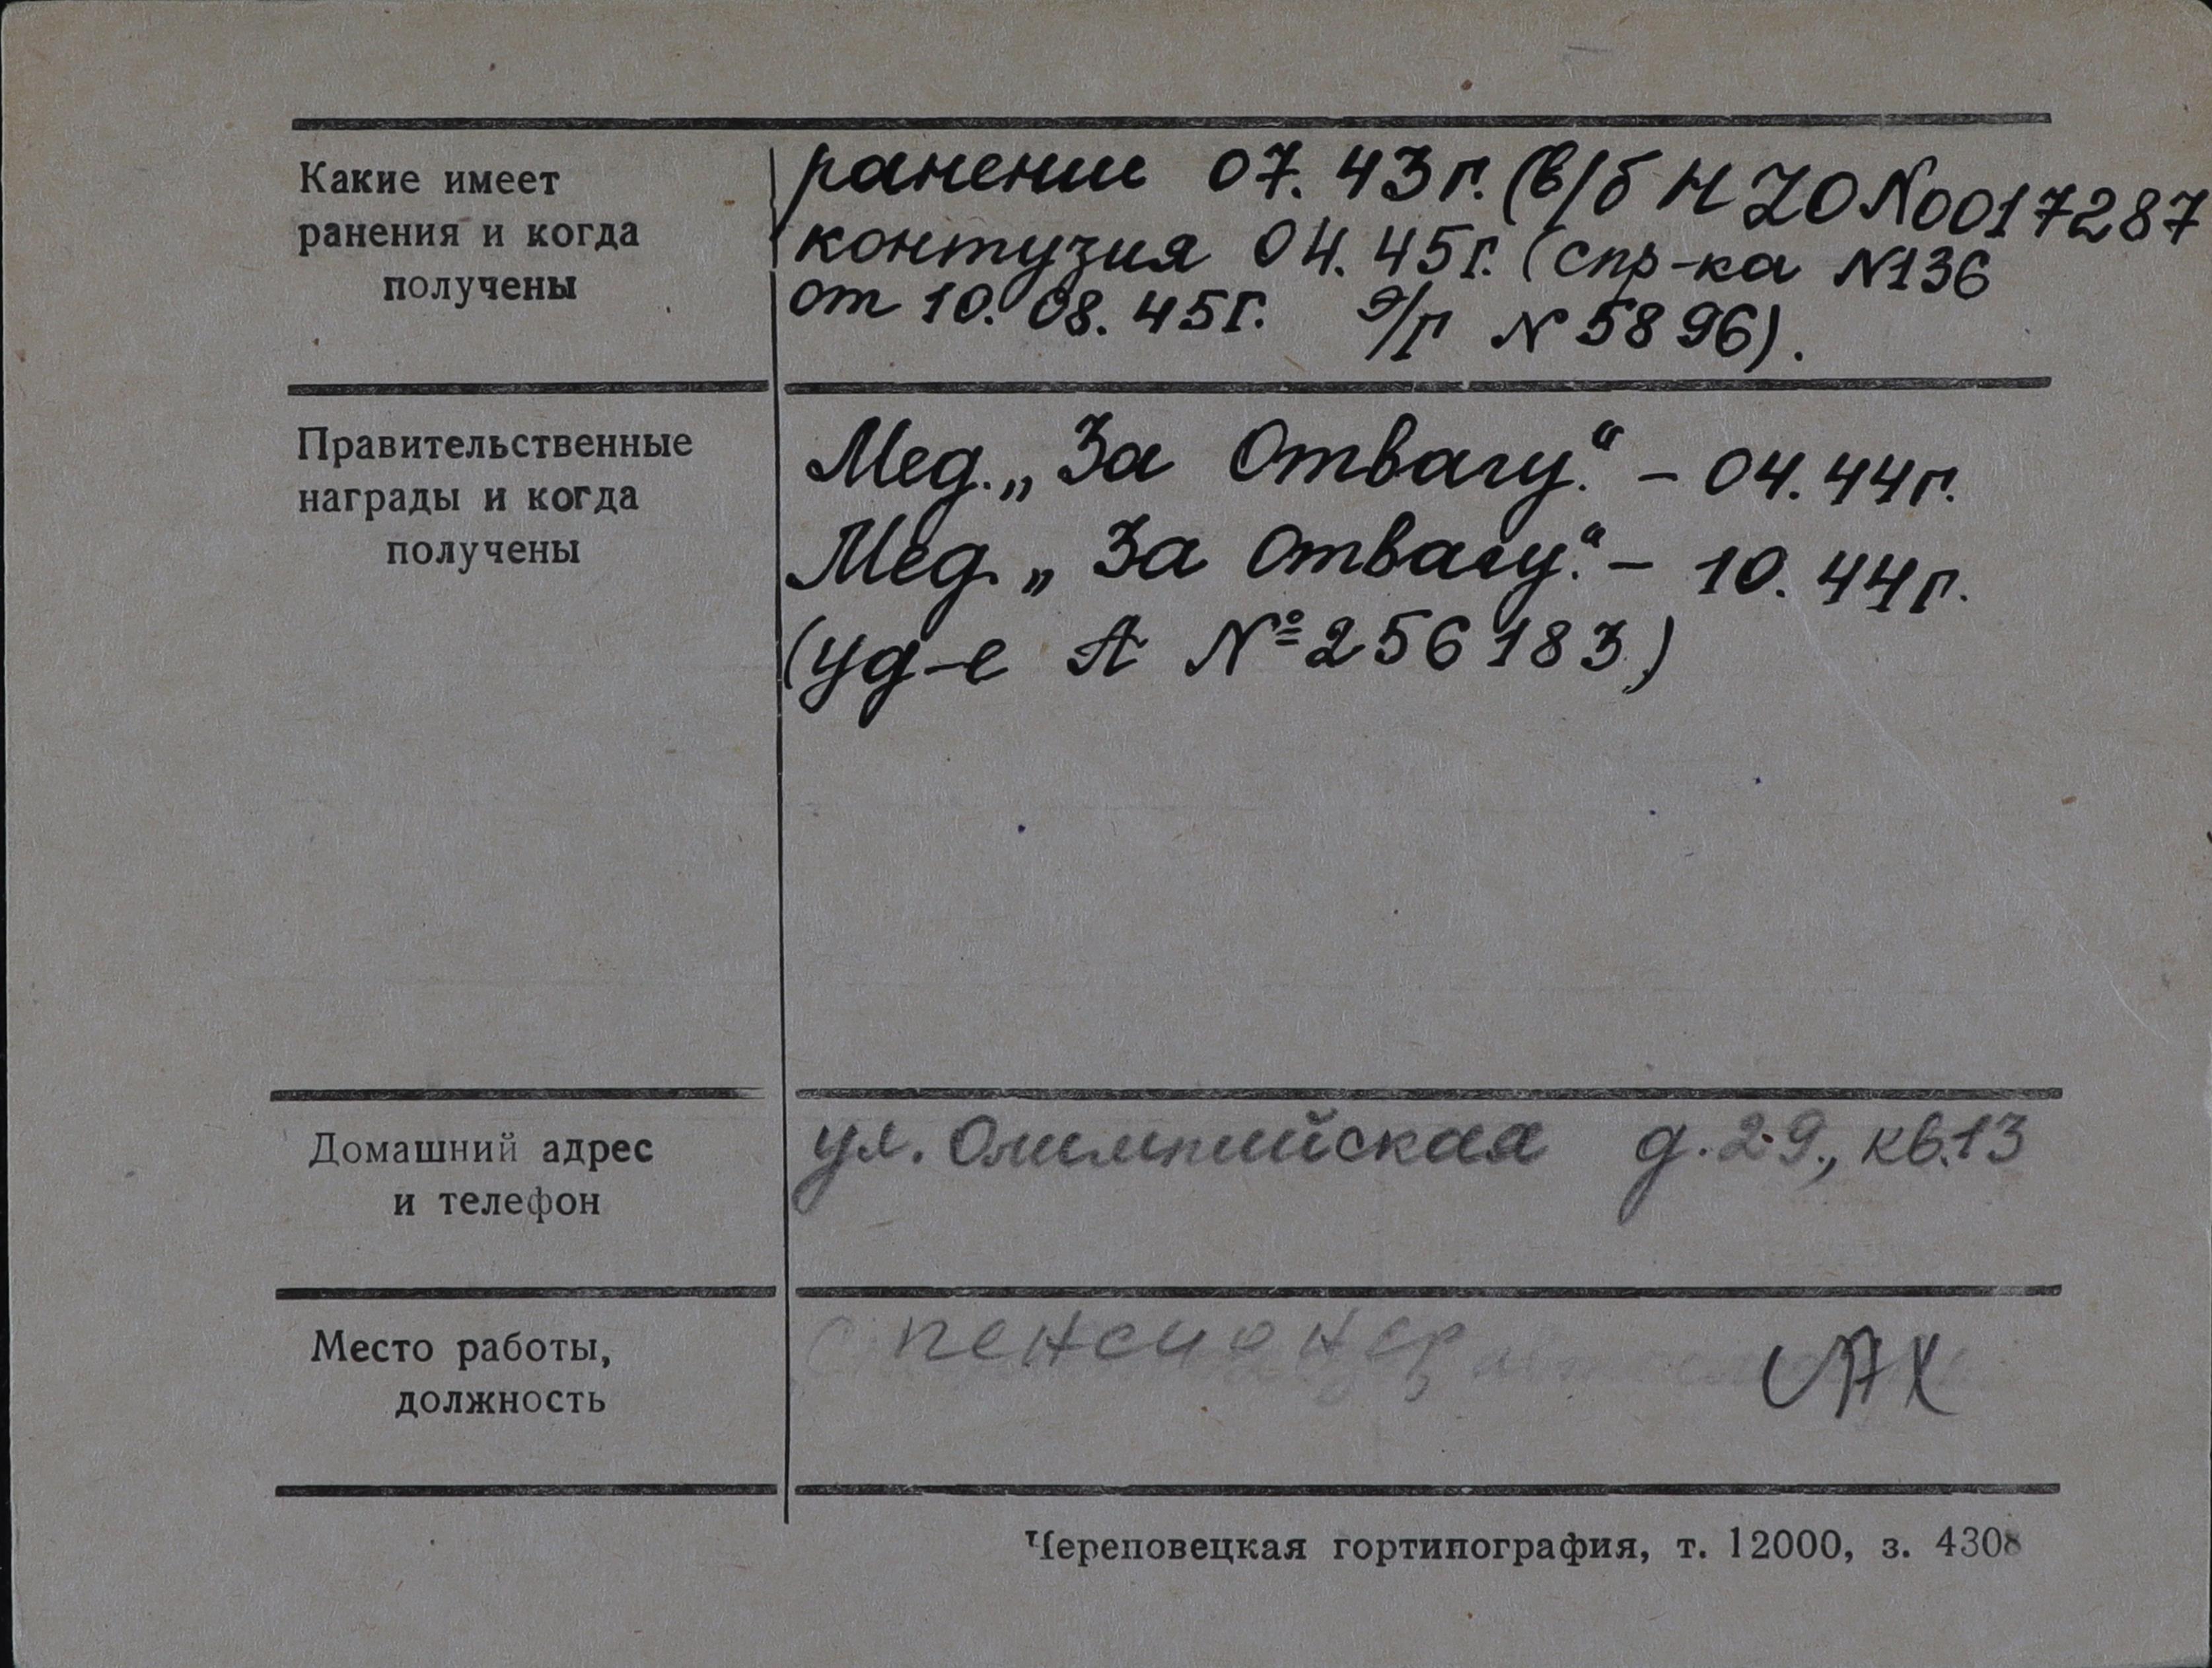 Какие имеет
ранения и когда
получены
ранение 07.43г. (в/б НZО №0017287
контузия 04.45г. (спр-ка №136
от 10.08.45г. э/г №5896).
Правительственные
награды и когда
получены
Мед. „За Отвагу." – 04.44г.
Мед. „За Отвагу." – 10.44г.
(уд-е А №256183)
Домашний адрес
и телефон
ул. Олимпийская д.29, кв.13
Место работы,
должность
пенсионер
Череповецкая гортипография, т. 12000, з. 4308